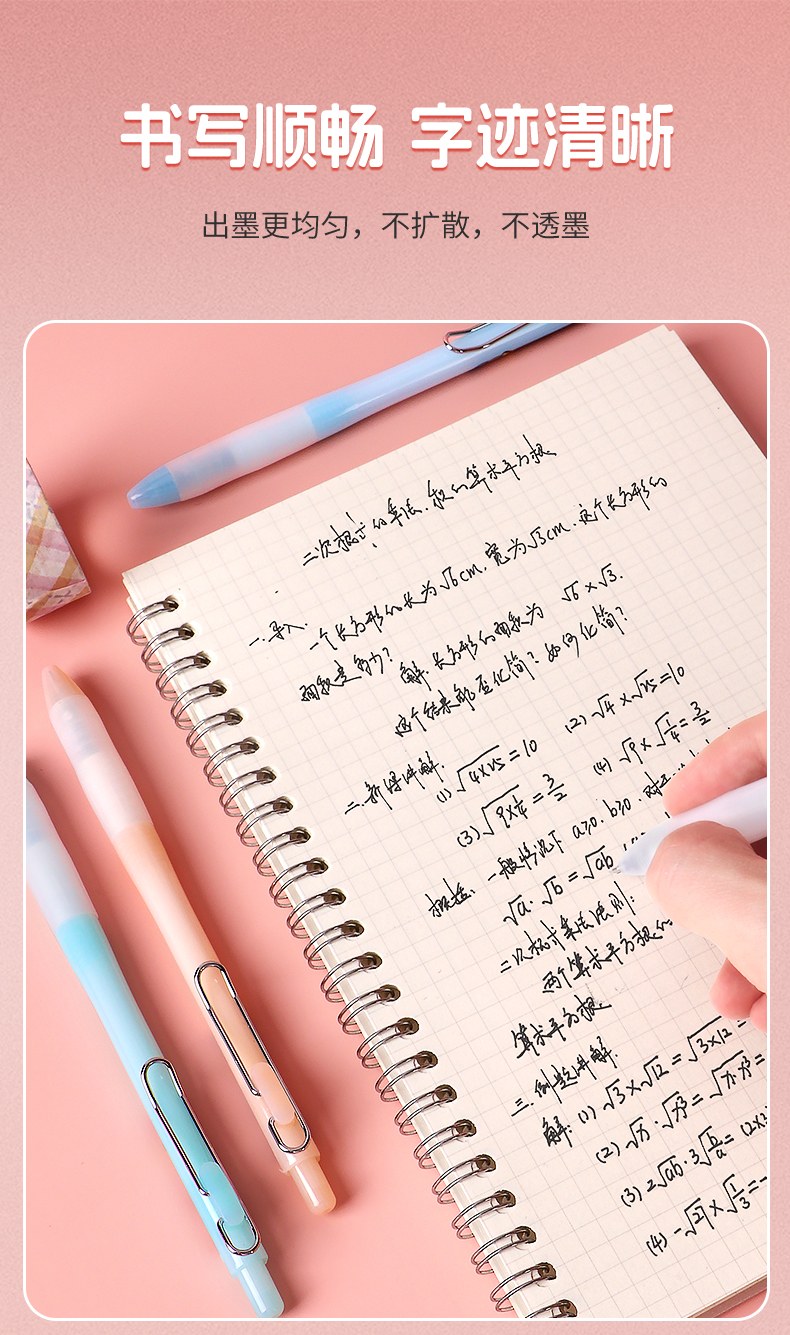 书写顺畅 字迹清晰
出墨更均匀，不扩散，不透墨
二次根式的乘法.积的算术平方根
一.导入. 一个长方形的长为√6cm,宽为√3cm.这个长方形的
面积是多少? 解.长方形的面积为 √6×√3.
这个结果能否化简?如何化简?
二.新课讲解.
(1)√4×25=10 (2)√4×√25=10
(3)√9×1/4=3/2 (4)√9×√1/4=3/2
概括: 一般情况下 a≥0.b≥0.对于
√a·√b=√ab
二次根式乘法法则:
两个算术平方根的
算术平方根
三.例题讲解.
解:(1)√3×√12=√3×12=
(2)√x·√x³=√x·x³=
(3)2√ab·3√b/a=(2×3
(4)-√21×√1/3=-